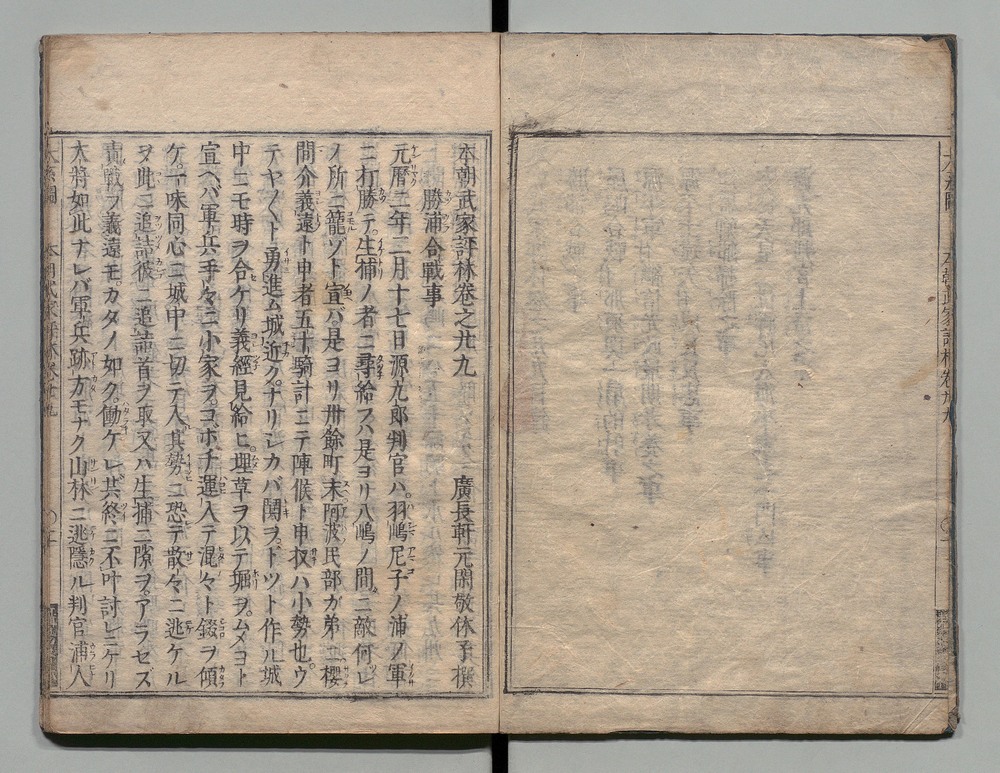 本朝武家評林巻之廿九　廣長軒元閑敬休子撰
勝浦合戰事
元暦二年二月十七日源九郎判官ハ羽嶋尼子ノ浦ノ軍
ニ打勝テ生捕ノ者ニ尋給スハ是ヨリ八嶋ノ間ニ敵何レ
ノ所ニ籠ゾト宣バ是ヨリ卅餘町末阿波民部ガ弟ニ櫻
間介義遠ト申者五十騎計ニテ陣候ト申扨ハ小勢也ウ
テヤ人々ト勇進ム城近クナリシカバ鬨ヲドツト作ル城
中ニモ時ヲ合ケリ義經見給ヒ埋草ヲ以テ堀ヲムメヨト
宣ヘバ軍兵手々ニ小家ヲコホチ運入テ混々ト錣ヲ傾
ケ一味同心ニ城中ニ切テ入其勢ニ恐テ散々ニ逃ケル
ヲ此ニ追詰彼ニ追詰首ヲ取又ハ生捕ニ隙ヲアラセズ
責戰フ義遠モカタノ如ク働ケレ共終ニ不叶討レニケリ
大將如此ナレバ軍兵跡方モナク山林ニ逃隱ル判官浦人
本朝武家評林巻廿九